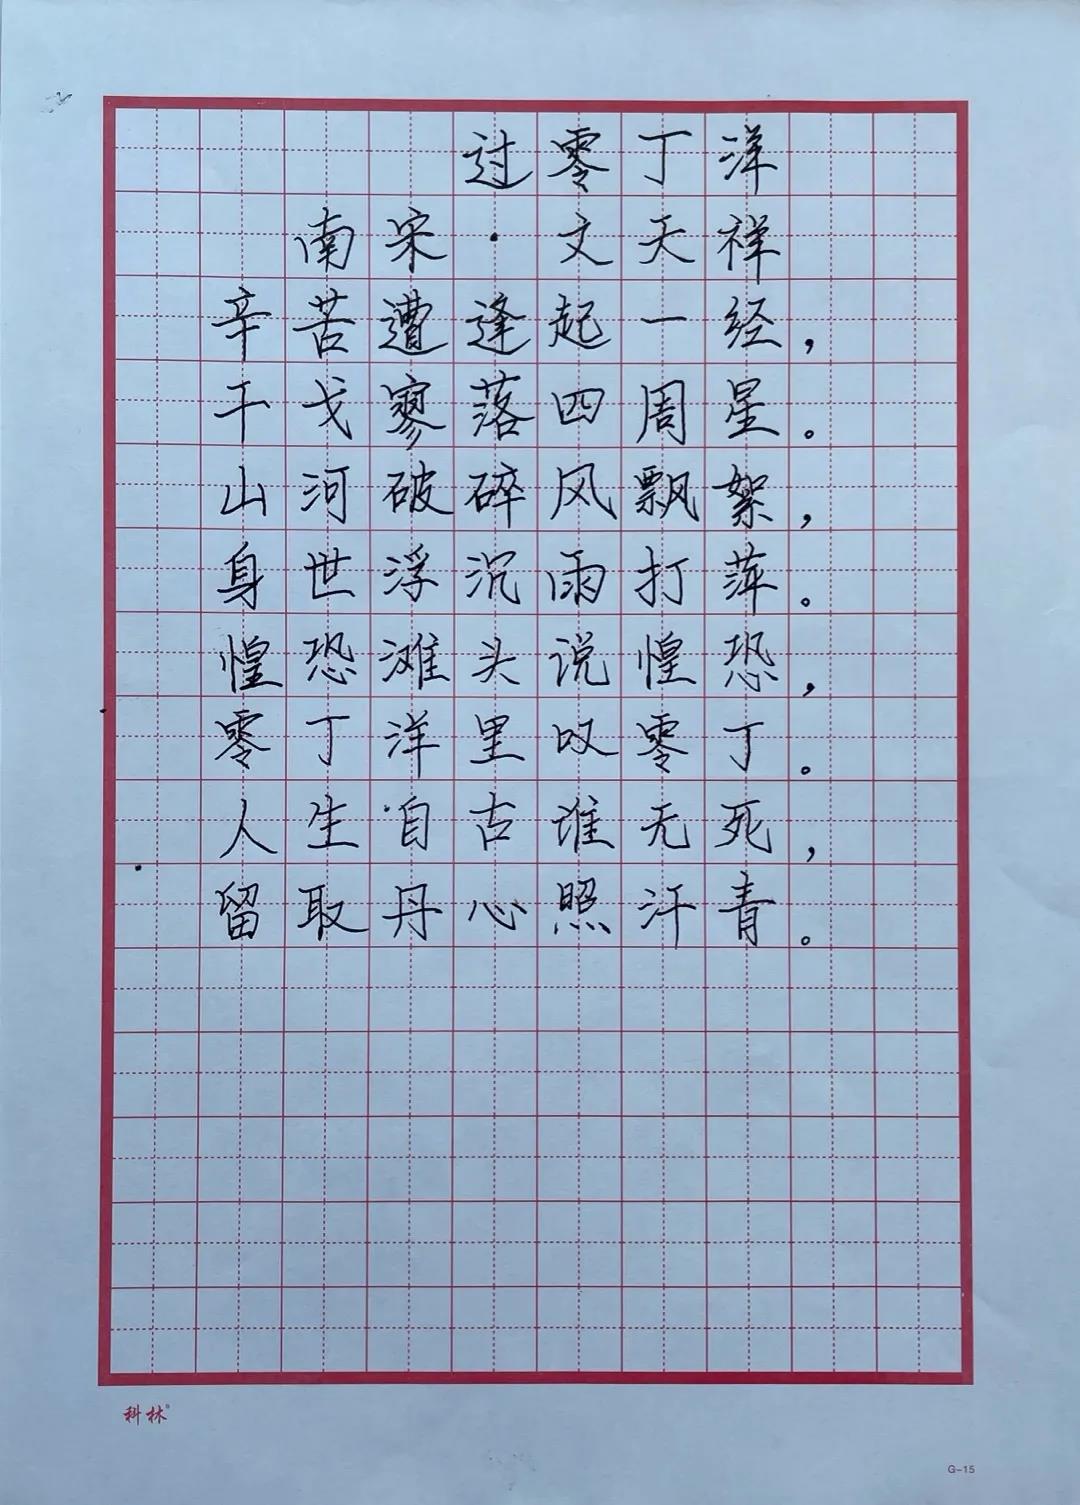 过零丁洋
南宋·文天祥
辛苦遭逢起一经，
干戈寥落四周星。
山河破碎风飘絮，
身世浮沉雨打萍。
惶恐滩头说惶恐，
零丁洋里叹零丁。
人生自古谁无死，
留取丹心照汗青。
科林®
G-15